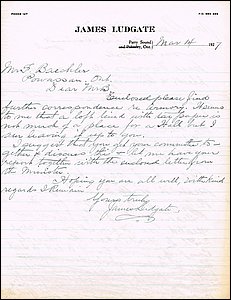 PHONE 117
P.O. BOX 499
JAMES LUDGATE
Parry Sound
and Pakesley, Ont.
Mar 14 1927
Mr. F. Baechler
Powassan, Ont.
Dear Mr B.
Enclosed please find
further correspondence re Armory. It seems
to me that a loft lined with tar paper is
not much of a place for a Hall but I
am leaving it up to you.
I suggest that you get your committee to-
gether & discuss this & let me have your
report together with the enclosed letter from
the Minister.
Hoping you are all well, with kind
regards I remain
Yours truly
James Ludgate